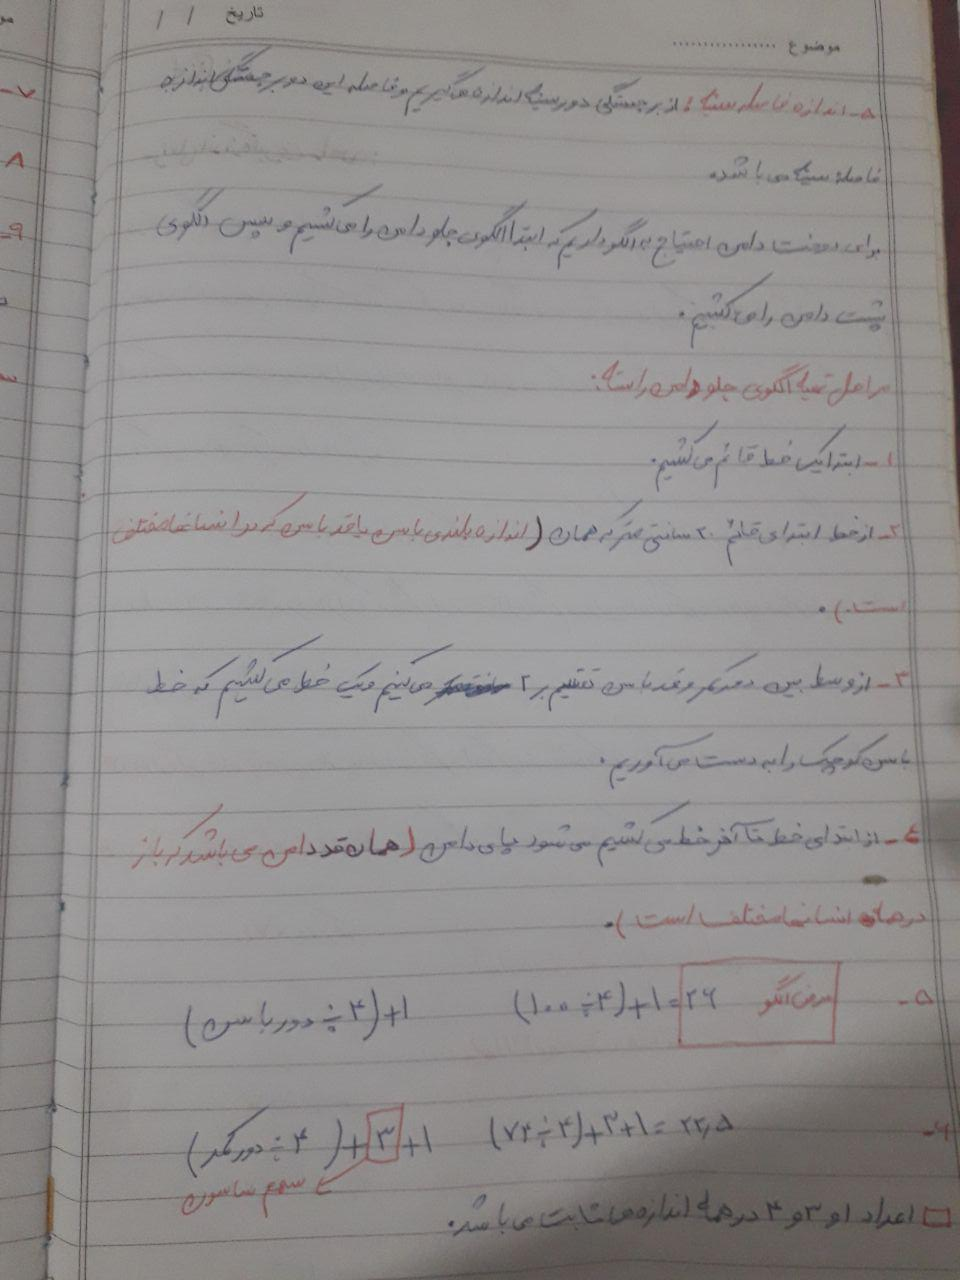 تاریخ / /
موضوع ..................
۵- اندازه فاصله سینه: از برجستگی دور سینه اندازه می‌گیریم و فاصله این دو برجستگی اندازه
فاصله سینه می باشد.
برای دوخت دامن احتیاج به الگو داریم که ابتدا الگوی جلو دامن را می کشیم و سپس الگوی
پشت دامن را می کشیم.
مراحل تهیه الگوی جلو دامن راسته:
۱- ابتدا یک خط قائم می کشیم.
۲- از خط ابتدای قائم ۲۰ سانتی متر که همان (اندازه بلندی باسن یا قد باسن که در انسانها مختلف
است.).
۳- از وسط بین دور کمر و قد باسن تقسیم بر ۲ می کنیم و یک خط می کشیم که خط
باسن کوچک را به دست می آوریم.
۴- از ابتدای خط تا آخر خط می کشیم می شود پای دامن (همان قد دامن می باشد که باز
در همه انسانها مختلف است).
۵- عرض الگو ۲۶=۱+(۴÷۱۰۰) ۱+(۴÷دور باسن)
۶- ۲۲٫۵=۱+۳+(۴÷۷۴) ۱+۳+(۴÷دور کمر)
سهم ساسون
اعداد ۱ و ۳ و ۴ در همه اندازه ها ثابت می باشد.